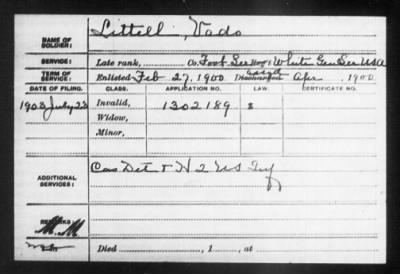 NAME OF SOLDIER: Littell, Vado
SERVICE: Late rank, Co. Foot Ser Reg't White Gen Ser USA
TERM OF SERVICE: Enlisted Feb 27, 1900 Discharged Apr , 1900
DATE OF FILING. CLASS. APPLICATION NO. LAW. CERTIFICATE NO.
1903 July 23 Invalid, 1302189
Widow,
Minor,
ADDITIONAL SERVICES: Cas Det & H 2 US Inf
REMARKS: M.M
Died , 1 , at